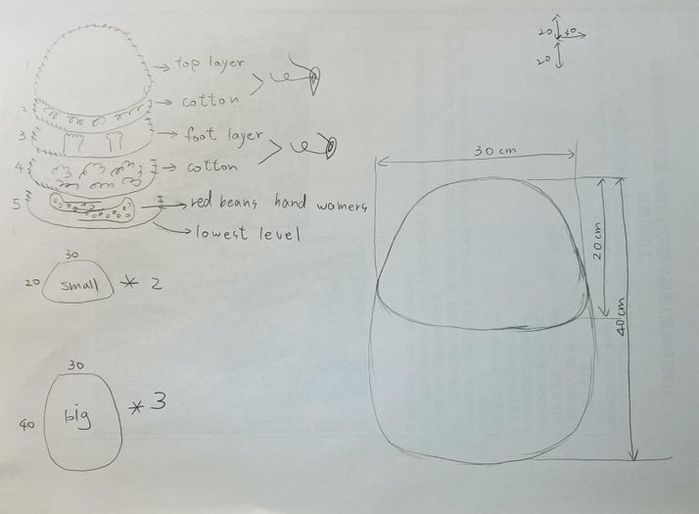 20 30
20
1 → top layer
2 → cotton
3 → foot layer
4 → cotton
5 → red beans hand wamers
→ lowest level
30
20 small * 2
30
40 big * 3
30 cm
20 cm
40 cm